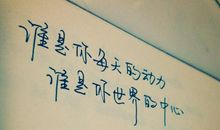 谁是你每天的动力
谁是你世界的中心